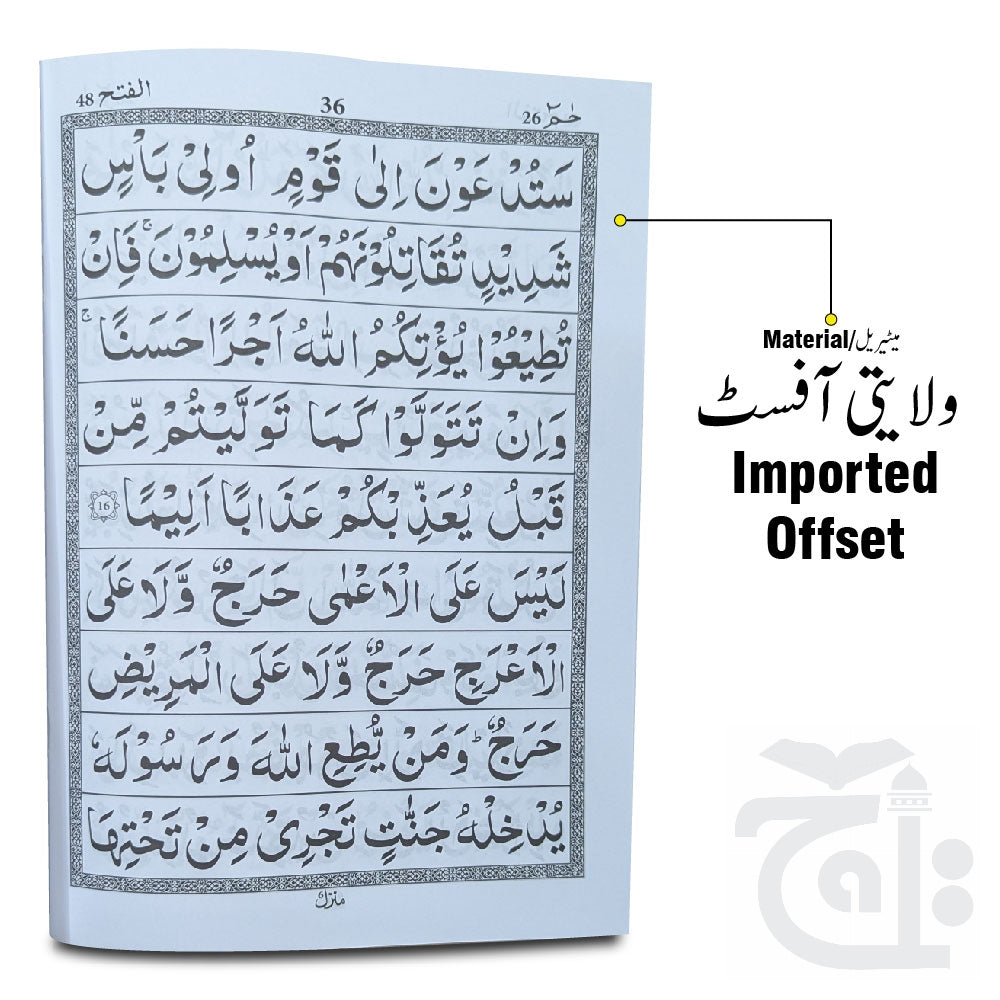 الفتح 48
36
حٰمٓ 26
سَتُدْعَوْنَ اِلٰى قَوْمٍ اُولِیْ بَاْسٍ
شَدِیْدٍ تُقَاتِلُوْنَهُمْ اَوْ یُسْلِمُوْنَ ۚ فَاِنْ
تُطِیْعُوْا یُؤْتِكُمُ اللّٰهُ اَجْرًا حَسَنًا ۚ
وَاِنْ تَتَوَلَّوْا كَمَا تَوَلَّیْتُمْ مِّنْ
قَبْلُ یُعَذِّبْكُمْ عَذَابًا اَلِیْمًا 16
لَیْسَ عَلَى الْاَعْمٰى حَرَجٌ وَّلَا عَلَى
الْاَعْرَجِ حَرَجٌ وَّلَا عَلَى الْمَرِیْضِ
حَرَجٌ ؕ وَمَنْ یُّطِعِ اللّٰهَ وَرَسُوْلَهٗ
یُدْخِلْهُ جَنّٰتٍ تَجْرِیْ مِنْ تَحْتِهَا
Material/میٹیریل
ولایتی آفسٹ
Imported
Offset